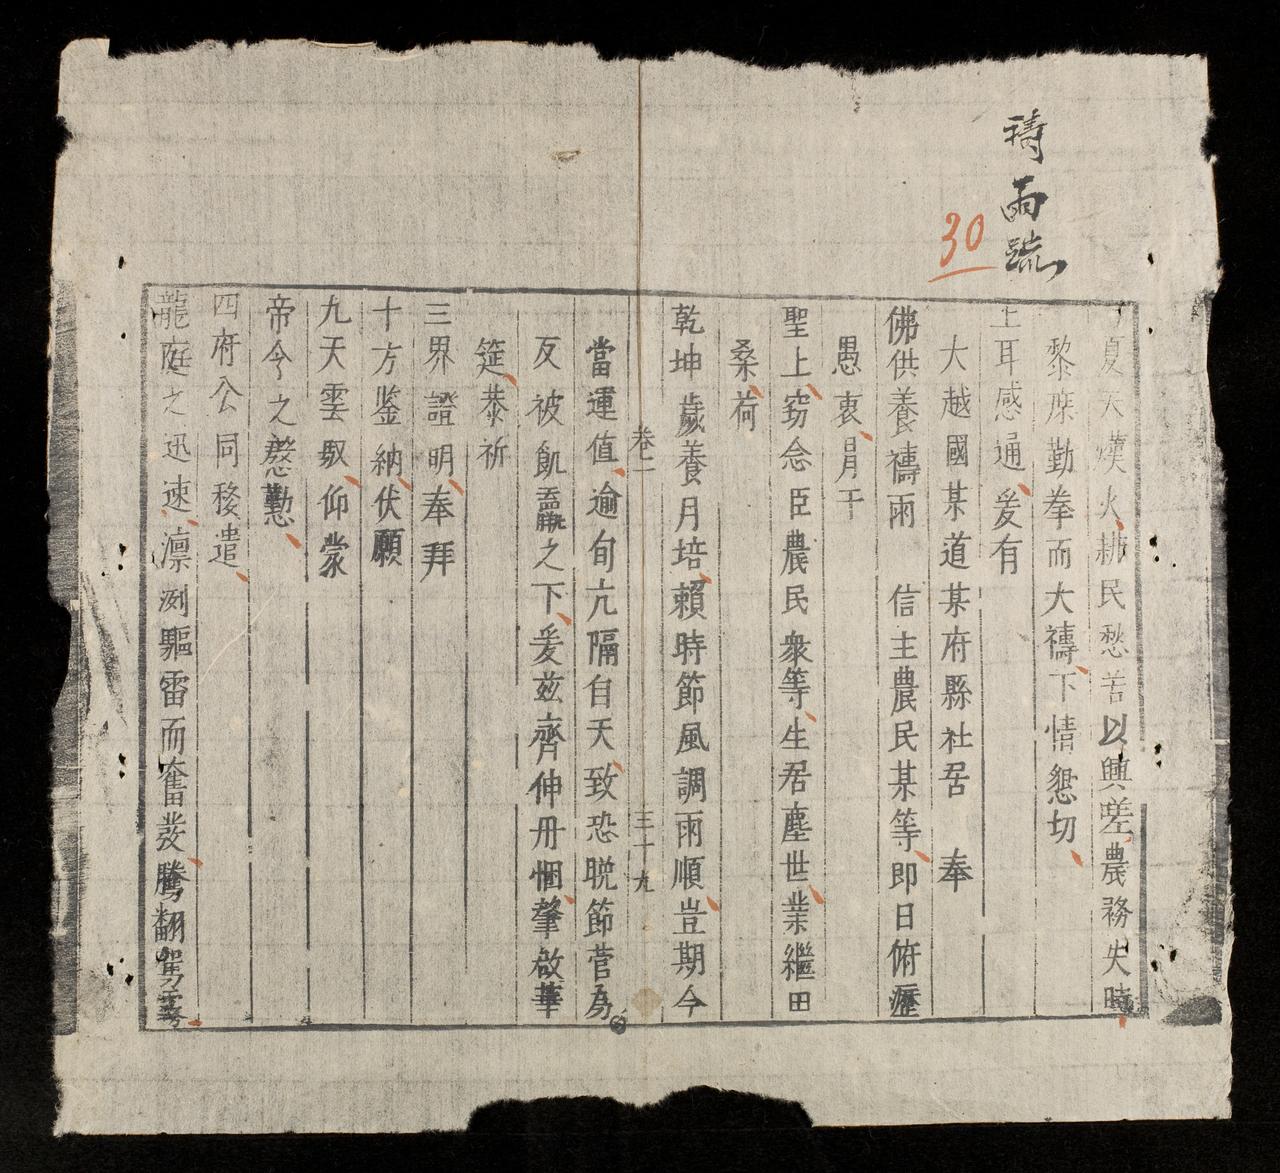 禱雨疏
30
夏天熯火耕民愁苦以興嗟農務失時
黎庶勤拳而大禱下情懇切
土耳感通爰有
大越國某道某府縣社居 奉
佛供養禱雨 信主農民某等即日俯瀝
愚衷冐干
聖上窃念臣農民衆等生居塵世業繼田
桑荷
乾坤歲養月培賴時節風調雨順豈期今
卷一 三十九
當運值逾旬亢隔自天致恐晩節菅为
反被飢之下爰玆齊伸丹悃肈啟華
筵恭祈
三界證明奉拜
十方鉴納伏願
九天雲馭仰蒙
帝令之慇懃
四府公同移遣
龍庭之迅速凛冽驅雷而奮發騰翻駕雲